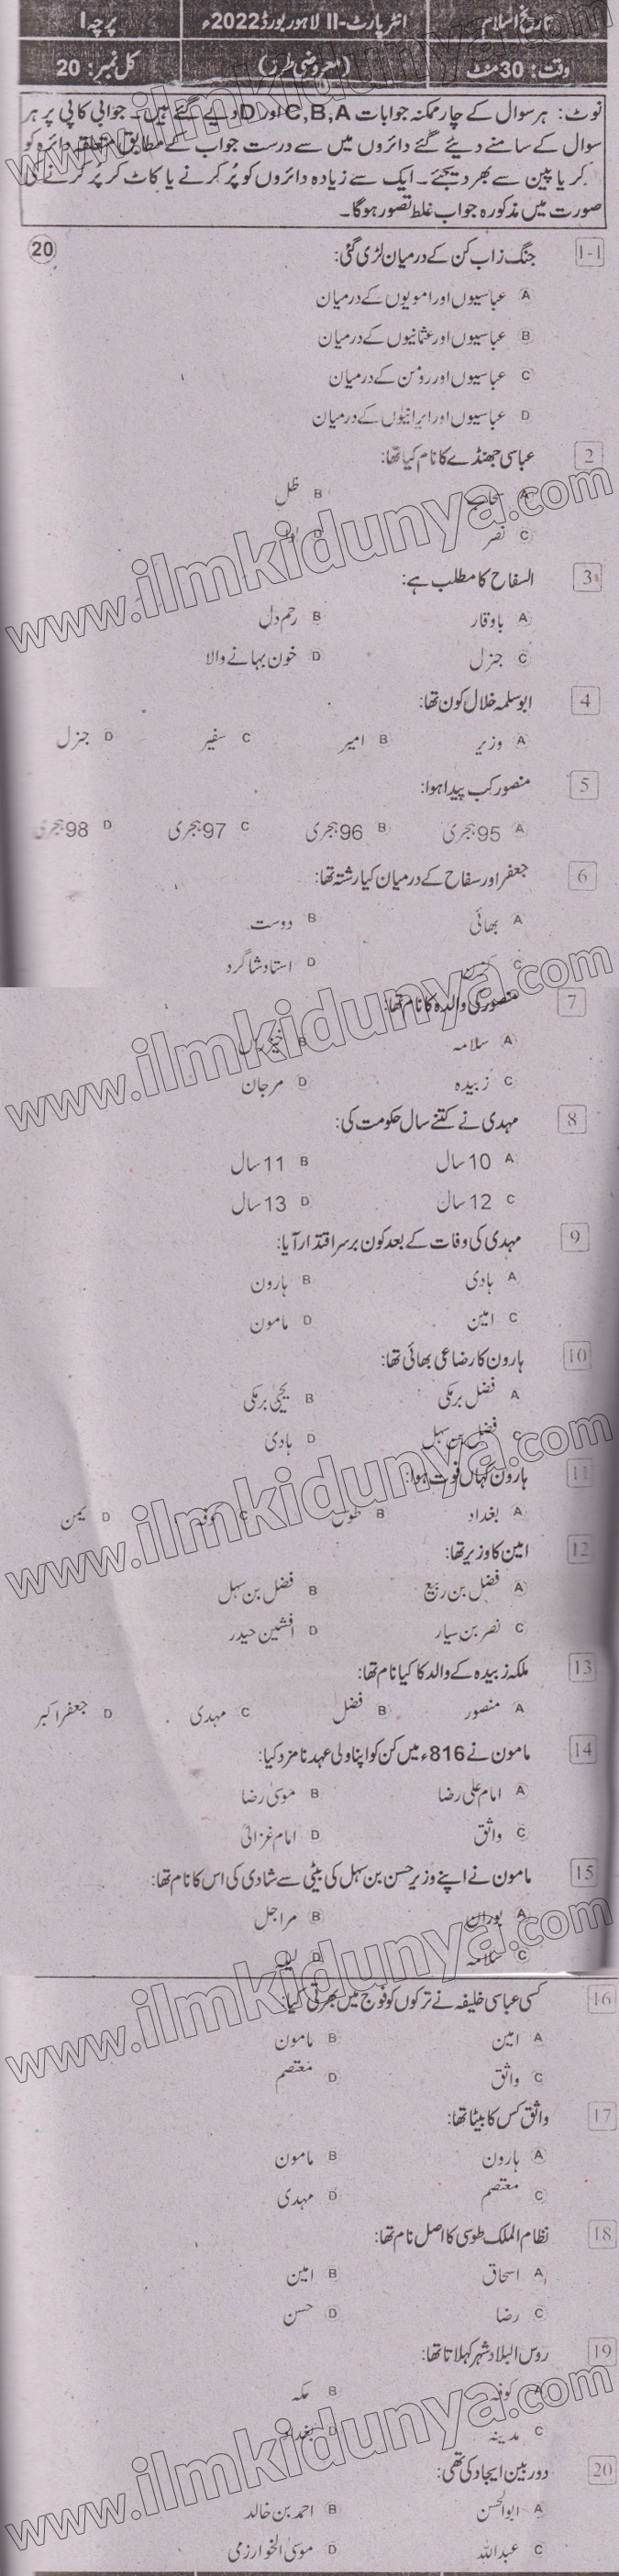 تاریخ اسلام
انٹر پارٹ-II لاہور بورڈ 2022ء
پرچہ I
وقت: 30 منٹ
(معروضی طرز)
کل نمبر: 20
نوٹ: ہر سوال کے چار ممکنہ جوابات C,B,A اور D دیے گئے ہیں۔ جوابی کاپی پر ہر
سوال کے سامنے دیئے گئے دائروں میں سے درست جواب کے مطابق متعلقہ دائرہ کو
کر یا پین سے بھر دیجئے۔ ایک سے زیادہ دائروں کو پُر کرنے یا کاٹ کر پُر کرنے کی
صورت میں مذکورہ جواب غلط تصور ہوگا۔
1-1 جنگ زاب کن کے درمیان لڑی گئی: 20
A عباسیوں اور امویوں کے درمیان
B عباسیوں اور عثمانیوں کے درمیان
C عباسیوں اور رومن کے درمیان
D عباسیوں اور ایرانیوں کے درمیان
2 عباسی جھنڈے کا نام کیا تھا:
A سحاب B ظل
C نصر D لوا
3 السفاح کا مطلب ہے:
A باوقار B رحم دل
C جنرل D خون بہانے والا
4 ابوسلمہ خلال کون تھا:
A وزیر B امیر C سفیر D جنرل
5 منصور کب پیدا ہوا:
A 95 ہجری B 96 ہجری C 97 ہجری D 98 ہجری
6 جعفر اور سفاح کے درمیان کیا رشتہ تھا:
A بھائی B دوست
C D استاد شاگرد
7 منصور کی والدہ کا نام تھا:
A سلامہ B خیزران
C زبیدہ D مرجان
8 مہدی نے کتنے سال حکومت کی:
A 10 سال B 11 سال
C 12 سال D 13 سال
9 مہدی کی وفات کے بعد کون برسر اقتدار آیا:
A ہادی B ہارون
C امین D مامون
10 ہارون کا رضاعی بھائی تھا:
A فضل برمکی B یحییٰ برمکی
C فضل بن سہل D ہادی
11 ہارون کہاں فوت ہوا:
A بغداد B طوس C کوفہ D یمن
12 امین کا وزیر تھا:
A فضل بن ربیع B فضل بن سہل
C نصر بن سیار D افشین حیدر
13 ملکہ زبیدہ کے والد کا کیا نام تھا:
A منصور B فضل C مہدی D جعفر اکبر
14 مامون نے 816ء میں کن کو اپنا ولی عہد نامزد کیا:
A امام علی رضا B موسیٰ رضا
C واثق D امام غزالیؒ
15 مامون نے اپنے وزیر حسن بن سہل کی بیٹی سے شادی کی اس کا نام تھا:
A بوران B مراجل
C سلامہ D لیلیٰ
16 کسی عباسی خلیفہ نے ترکوں کو فوج میں بھرتی کیا:
A امین B مامون
C واثق D معتصم
17 واثق کس کا بیٹا تھا:
A ہارون B مامون
C معتصم D مہدی
18 نظام الملک طوسی کا اصل نام تھا:
A اسحاق B امین
C رضا D حسن
19 روس البلاد شہر کہلاتا تھا:
A کوفہ B مکہ
C مدینہ D بغداد
20 دوربین ایجاد کی تھی:
A ابوالحسن B احمد بن خالد
C عبداللہ D موسیٰ الخوارزمی
www.ilmkidunya.com
www.ilmkidunya.com
www.ilmkidunya.com
www.ilmkidunya.com
www.ilmkidunya.com
www.ilmkidunya.com